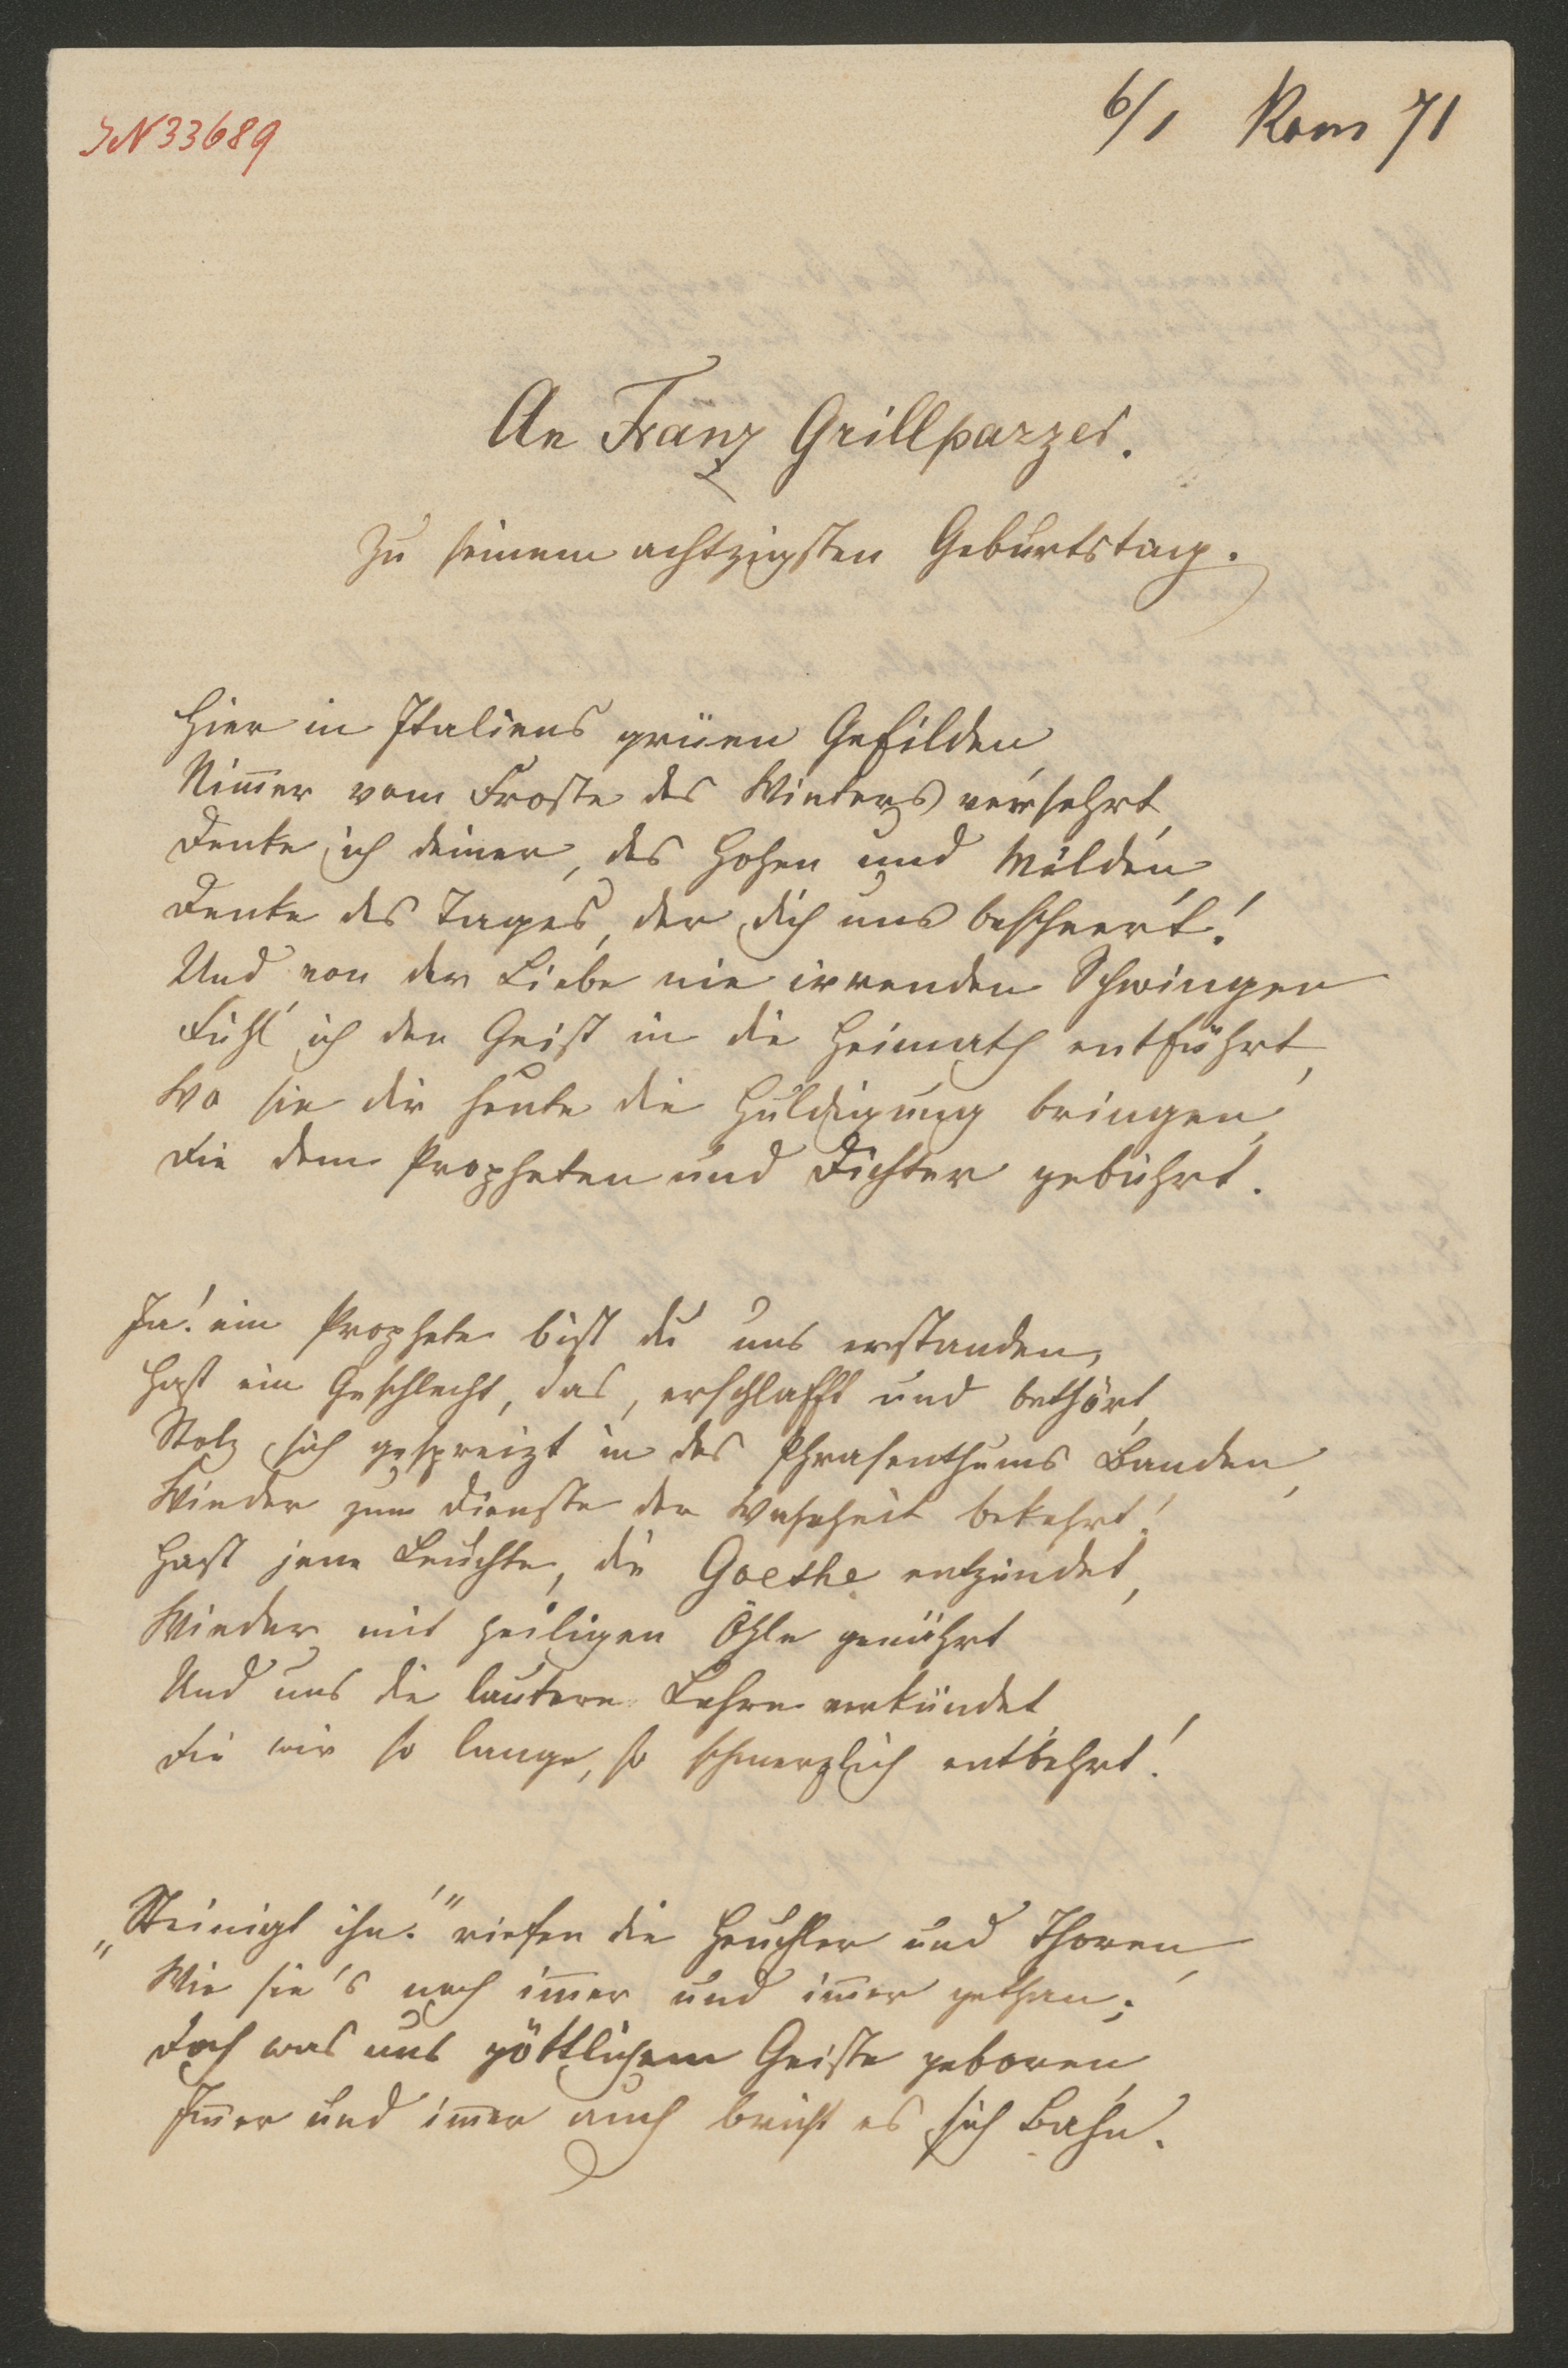 JN 33689
6/1 Rom 71
An Franz Grillparzer.
Zu seinem achtzigsten Geburtstag.
Hier in Italiens grünen Gefilden
Nim̅er vom Froste des Winters versehrt,
Denke ich deiner, des Hohen und Milden,
Denke des Tages, der dich uns bescheert!
Und von der Liebe nie irrenden Schwingen
Fühl' ich den Geist in die Heimath entführt,
Wo sie dir heute die Huldigung bringen,
Die dem Propheten und Dichter gebührt.
Ja! ein Prophete bist du uns erstanden,
Hast ein Geschlecht, das, erschlafft und bethört,
Stolz sich gespreizt in des Phrasenthums Banden,
Wieder zum Dienste der Wahrheit bekehrt!
Hast jene Leuchte, die Goethe entzündet,
Wieder mit heiligen Öhle genährt
Und uns die lautere Lehre verkündet,
Die wir so lange, so schmerzlich entbehrt!
„Steinigt ihn!“ riefen die Heuchler und Thoren,
Wie sie's noch im̅er und im̅er gethan;
Doch was aus göttlichem Geiste geboren,
Im̅er und im̅er auch bricht es sich Bahn.